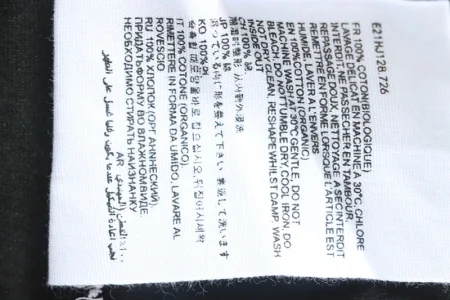 E21HJ128.726
FR 100% COTON(BIOLOGIQUE)
LAVAGE DELICAT EN MACHINE A 30°C, CHLORE
INTERDIT, NE PAS SECHER EN TAMBOUR,
REPASSAGE DOUX, NETTOYAGE A SEC INTERDIT
REMETTRE EN FORME LORSQUE L'ARTICLE EST
HUMIDE, LAVER A L'ENVERS
EN 100% COTTON (ORGANIC)
MACHINE WASH AT 30°C GENTLE, DO NOT
BLEACH, DO NOT TUMBLE DRY, COOL IRON, DO
NOT DRY CLEAN, RESHAPE WHILST DAMP, WASH
INSIDE OUT
CH 100% 綿
JP 100% 綿
湿っている内に形を整えて下さい 裏返して洗います
KO 100% 면
IT 100% COTONE (ORGANICO)
RIMETTERE IN FORMA DA UMIDO, LAVARE AL
ROVESCIO
RU 100% ХЛОПОК (ОРГАНИЧЕСКИЙ)
ПРИДАТЬ ФОРМУ ВО ВЛАЖНОМ ВИДЕ,
НЕОБХОДИМО СТИРАТЬ НАИЗНАНКУ
AR